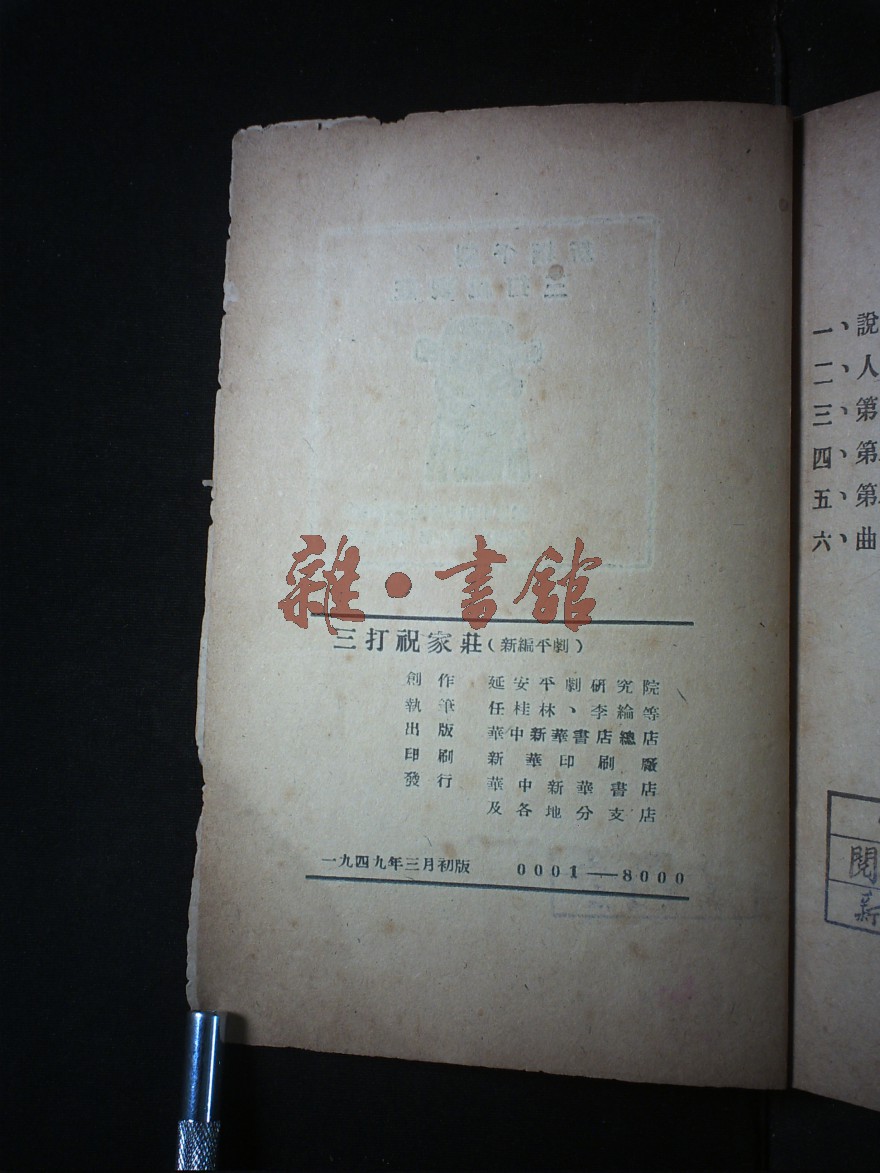 雜·書館
三打祝家莊（新編平劇）
創作 延安平劇研究院
執筆 任桂林、李綸等
出版 華中新華書店總店
印刷 新華印刷廠
發行 華中新華書店
及各地分支店
一九四九年三月初版 0001—8000
一、說
二、人
三、第
四、第
五、第
六、曲
閱
新